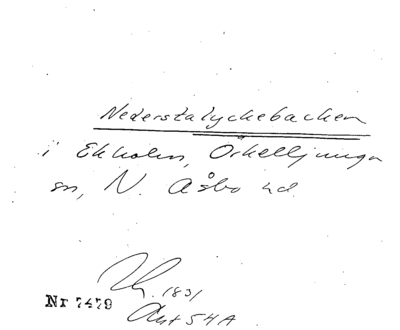 Nederstalyckebacken
i Ekholm, Örkelljunga
sn, N. Åsbo hd.
1831
Nr 7479
Ant 54A